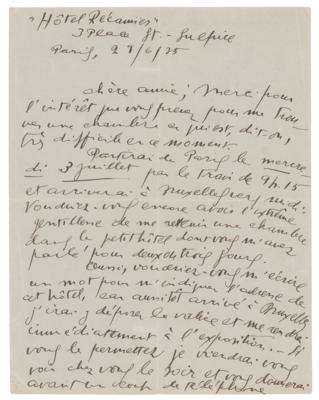 "Hôtel Récamier"
3 Place St-Sulpice
Paris, 28/6/35
chère amie; Merci pour
l'intérêt que vous prenez pour me trou
ver une chambre ce qui est, dit-on,
très difficile en ce moment.
Partirai de Paris le mercre
di 3 juillet par le train de 9h.15
et arriverai à Bruxelles midi.
Voudriez-vous encore avoir l'extrême
gentillesse de me retenir une chambre
dans le petit hôtel dont vous m'avez
parlé pour deux ou trois jours.
Aussi, voudriez-vous m'écrire
un mot pour m'indiquer l'adresse de
cet hôtel, car aussitôt arrivé à Bruxelles
j'irai y déposer la valise et me rendrai
immédiatement à l'exposition... Si
vous le permettez je viendrai vous
voir chez vous le soir et vous donnerai
avant un coup de téléphone